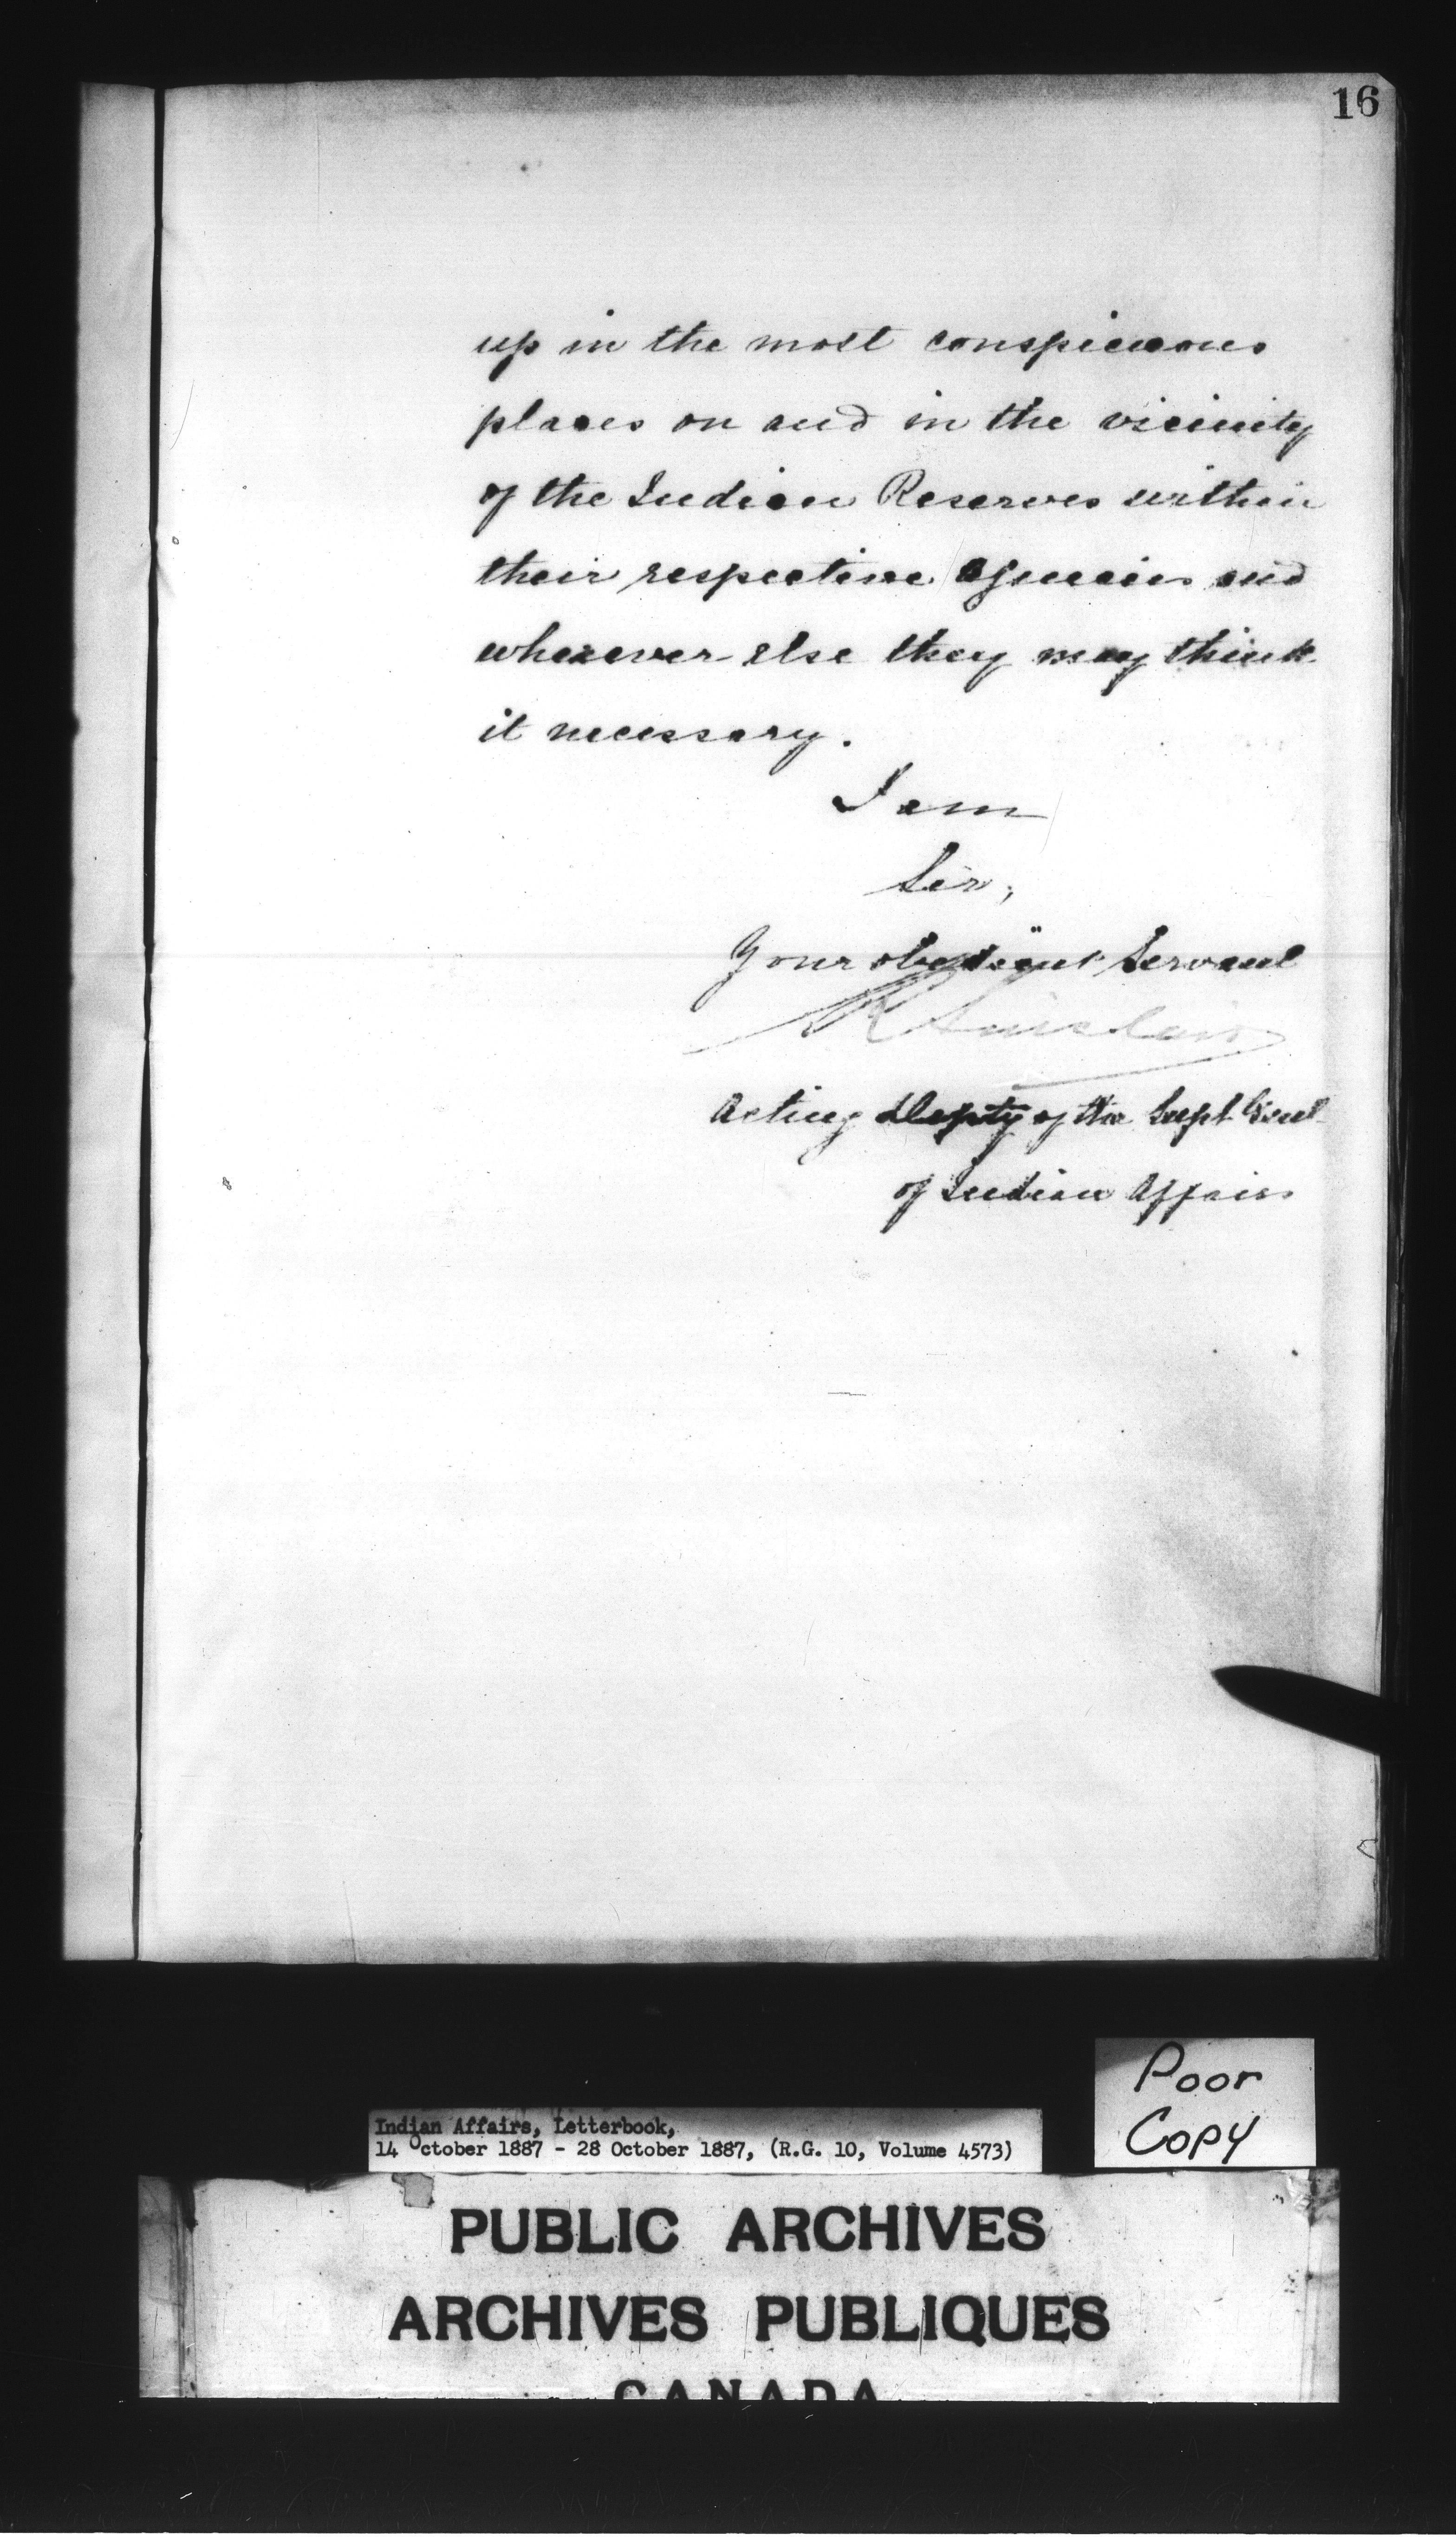 16
up in the most conspicuous
places on and in the vicinity
of the Indian Reserves within
their respective Agencies and
wherever else they may think
it necessary.
I am
Sir,
Your obedient Servant
R Sinclair
Acting Depty of the Supt Genl
of Indian Affairs
Poor
Copy
Indian Affairs, Letterbook,
14 October 1887 - 28 October 1887, (R.G. 10, Volume 4573)
PUBLIC ARCHIVES
ARCHIVES PUBLIQUES
CANADA